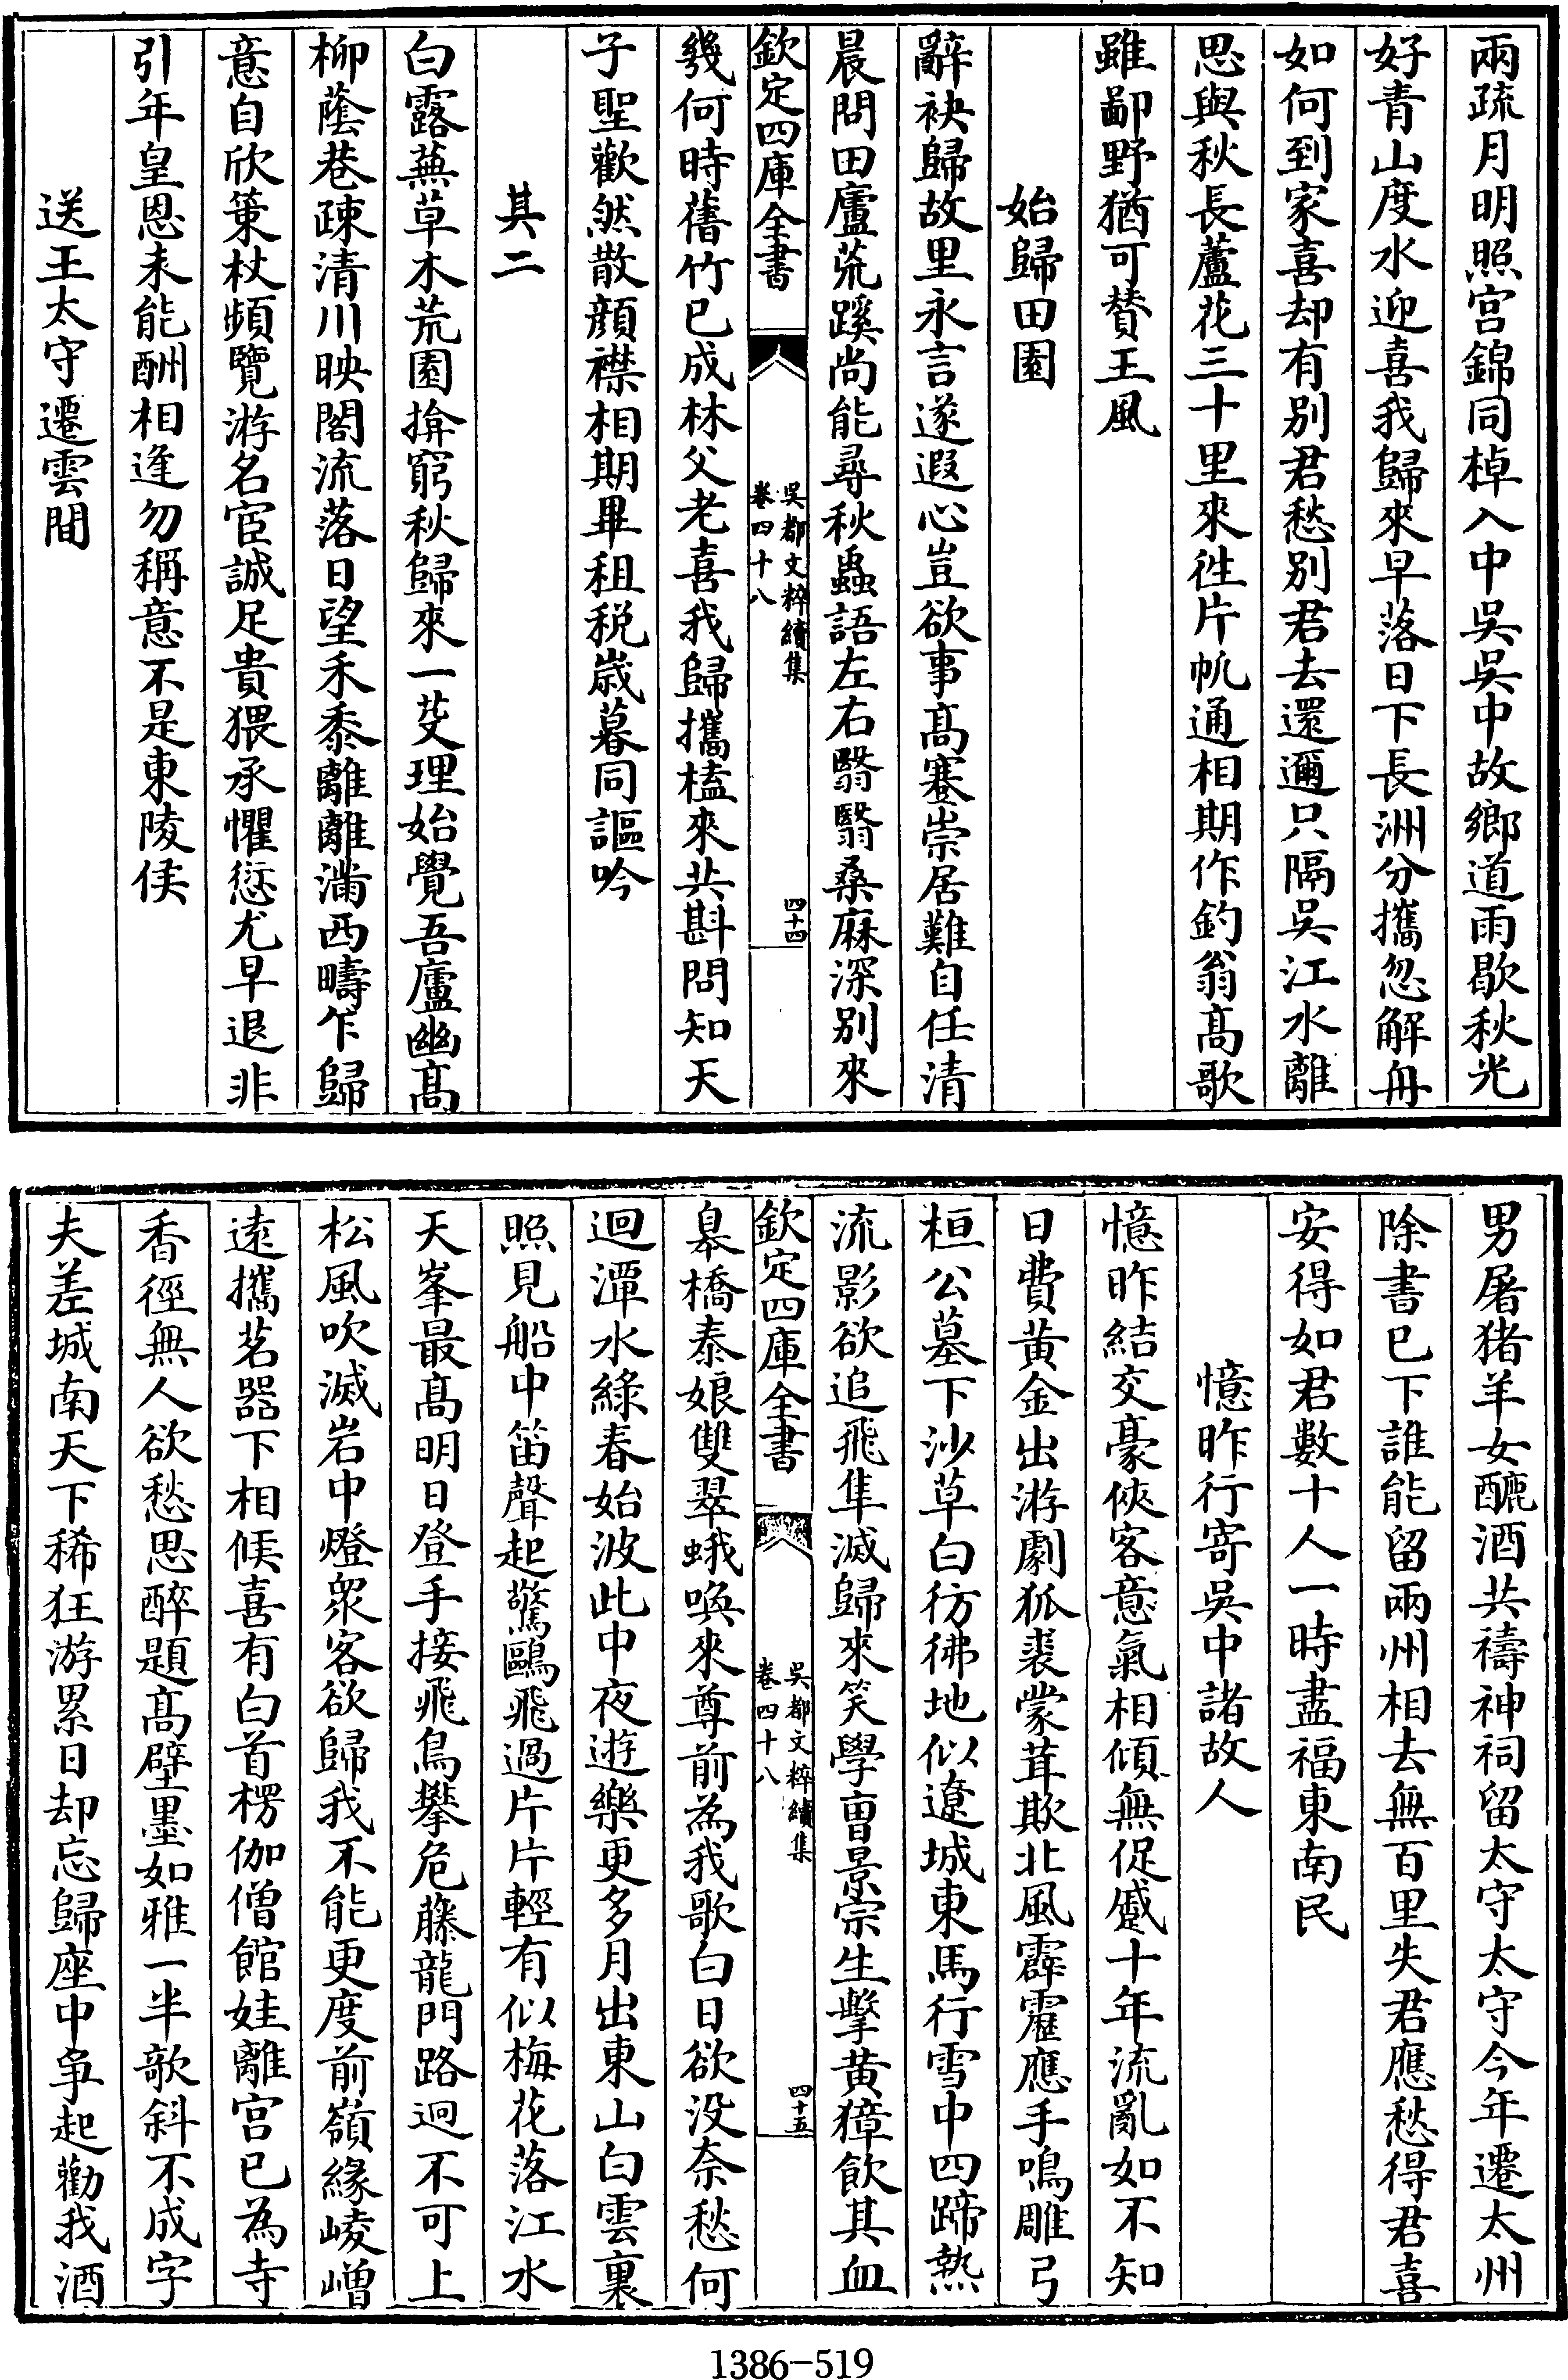 兩疏月明照宫錦同棹入中吳吳中故鄉道雨歇秋光
好青山度水迎喜我歸來早落日下長洲分攜忽解舟
如何到家喜却有別君愁別君去還邇只隔吳江水離
思與秋長蘆花三十里來徃片帆通相期作釣翁髙歌
雖鄙野猶可賛王風
始歸田園
辭袂歸故里永言遂遐心豈欲事髙蹇崇居難自任清
晨問田廬荒蹊尚能尋秋蟲語左右翳翳桑麻深別來
欽定四庫全書
吳都文粹續集
卷四十八
四十四
幾何時舊竹已成林父老喜我歸攜榼來共斟問知天
子聖歡然散顔襟相期畢租税歳暮同謳吟
其二
白露蕪草木荒園揜窮秋歸來一芟理始覺吾廬幽髙
柳蔭巷疎清川映閣流落日望禾黍離離滿西疇乍歸
意自欣策杖頻覽游名宦誠足貴猥承懼愆尤早退非
引年皇恩未能酬相逢勿稱意不是東陵侯
送王太守遷雲間
男屠猪羊女釃酒共禱神祠留太守太守今年遷太州
除書已下誰能留兩州相去無百里失君應愁得君喜
安得如君數十人一時盡福東南民
憶昨行寄吳中諸故人
憶昨結交豪俠客意氣相傾無促戚十年流亂如不知
日費黄金出游劇狐裘蒙茸欺北風霹靂應手鳴雕弓
桓公墓下沙草白彷彿地似遼城東馬行雪中四蹄熱
流影欲追飛隼滅歸來笑學曺景宗生擊黄獐飲其血
欽定四庫全書
吳都文粹續集
卷四十八
四十五
臯橋泰娘雙翠蛾喚來尊前為我歌白日欲没奈愁何
迴潭水綠春始波此中夜遊樂更多月出東山白雲裏
照見船中笛聲起驚鷗飛過片片輕有似梅花落江水
天峯最髙明日登手接飛鳥攀危藤龍門路迥不可上
松風吹滅岩中燈衆客欲歸我不能更度前嶺緣崚嶒
遠攜茗器下相候喜有白首楞伽僧館娃離宫已為寺
香徑無人欲愁思醉題髙壁墨如雅一半欹斜不成字
夫差城南天下稀狂游累日却忘歸座中爭起勸我酒
1386-519